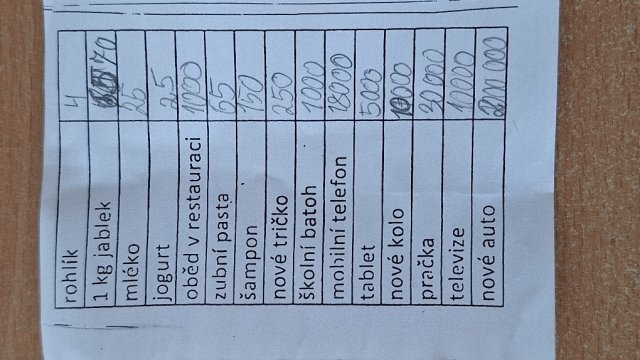 rohlík 4
1 kg jablek 70
mléko 25
jogurt 25
oběd v restauraci 1000
zubní pasta 65
šampon 150
nové tričko 250
školní batoh 1000
mobilní telefon 18000
tablet 5000
nové kolo 10000
pračka 30 000
televize 10000
nové auto